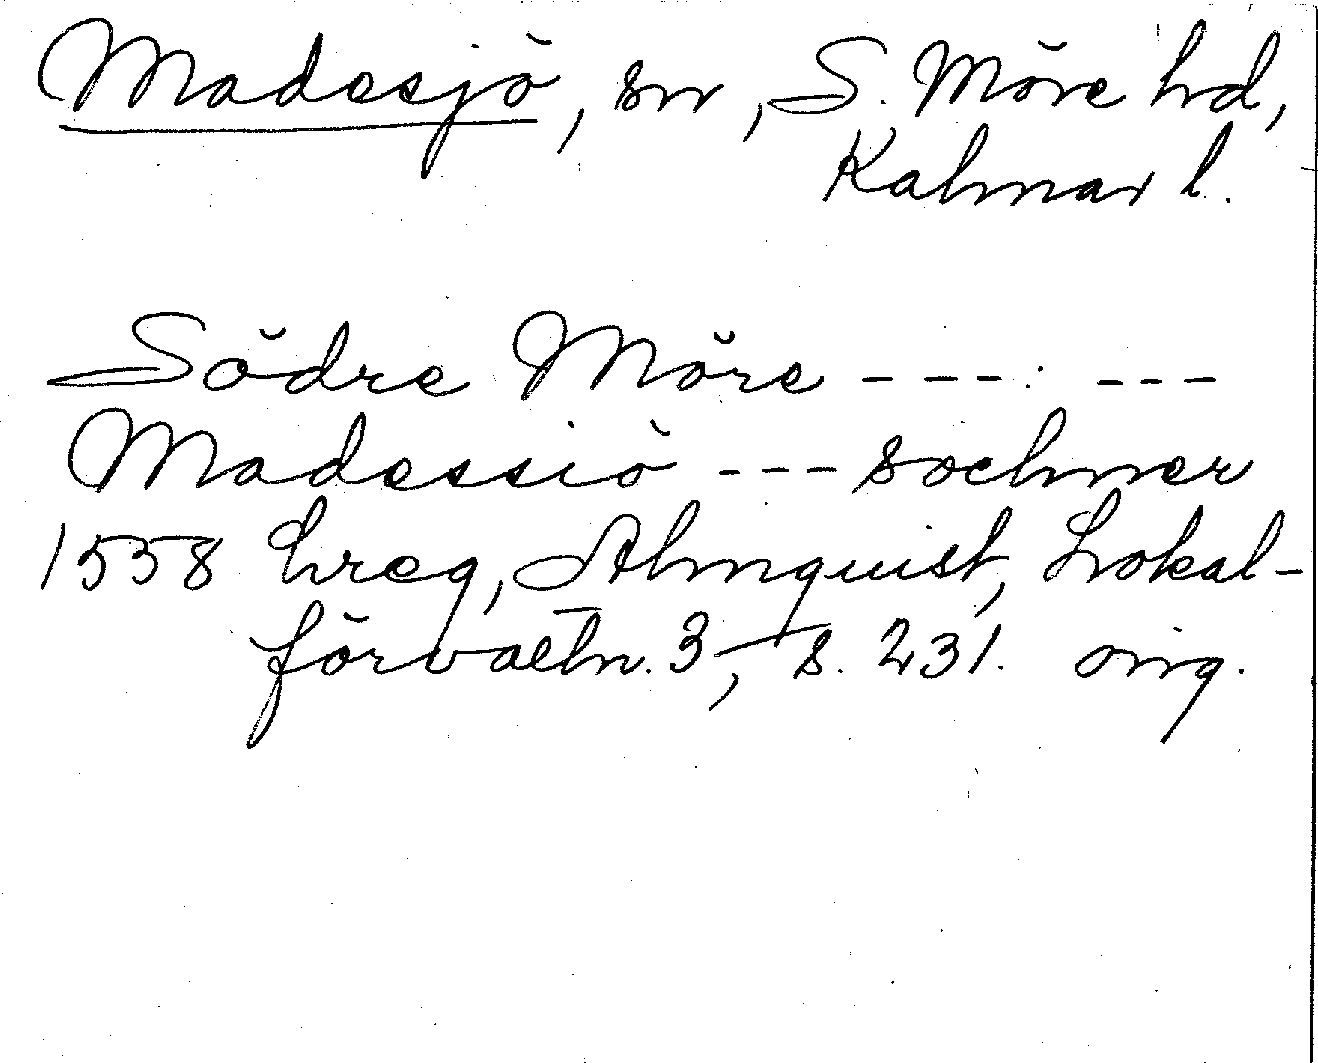 Madesjö, sn, S. Möre hd,
Kalmar l.
Södre Möre - - - - - - -
Madessiö - - - sochner
1558 hreg, Almquist, Lokal-
förvaltn. 3, s. 231. orig.